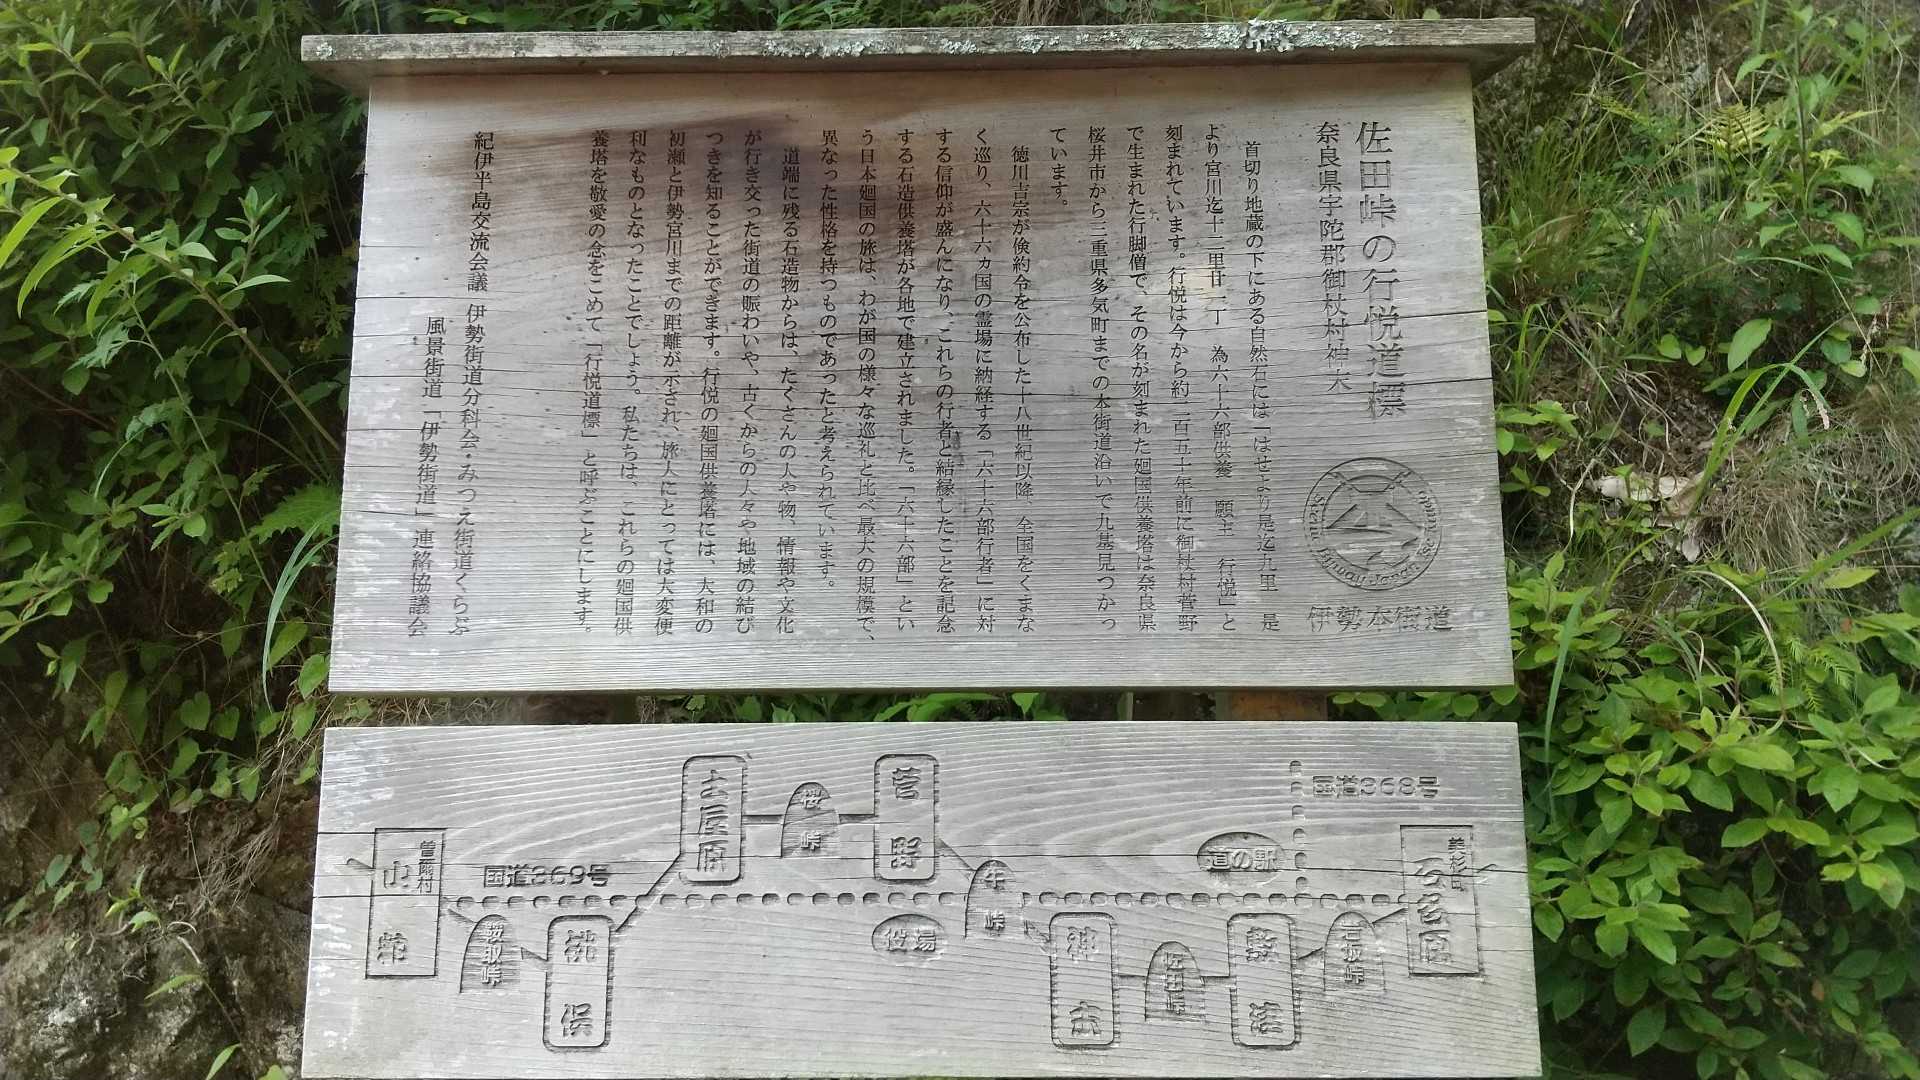 佐田峠の行悦道標
奈良県宇陀郡御杖村神末
Scenic Byway Japan
伊勢本街道
首切り地蔵の下にある自然石には「はせより是迄九里 是
より宮川迄十二里廿一丁 為六十六部供養 願主 行悦」と
刻まれています。行悦は今から約二百五十年前に御杖村菅野
で生まれた行脚僧で、その名が刻まれた廻国供養塔は奈良県
桜井市から三重県多気町までの本街道沿いで九基見つかっ
ています。
徳川吉宗が倹約令を公布した十八世紀以降、全国をくまな
く巡り、六十六ヵ国の霊場に納経する「六十六部行者」に対
する信仰が盛んになり、これらの行者と結縁したことを記念
する石造供養塔が各地で建立されました。「六十六部」とい
う日本廻国の旅は、わが国の様々な巡礼と比べ最大の規模で、
異なった性格を持つものであったと考えられています。
道端に残る石造物からは、たくさんの人や物、情報や文化
が行き交った街道の賑わいや、古くからの人々や地域の結び
つきを知ることができます。行悦の廻国供養塔には、大和の
初瀬と伊勢宮川までの距離が示され、旅人にとっては大変便
利なものとなったことでしょう。私たちは、これらの廻国供
養塔を敬愛の念をこめて「行悦道標」と呼ぶことにします。
紀伊半島交流会議 伊勢街道分科会・みつえ街道くらぶ
風景街道「伊勢街道」連絡協議会
国道368号
美杉町
石名原
岩坂峠
道の駅
敷津
佐田峠
神末
牛峠
役場
菅野
桜峠
土屋原
国道369号
桃俣
鞍取峠
曽爾村
山粕